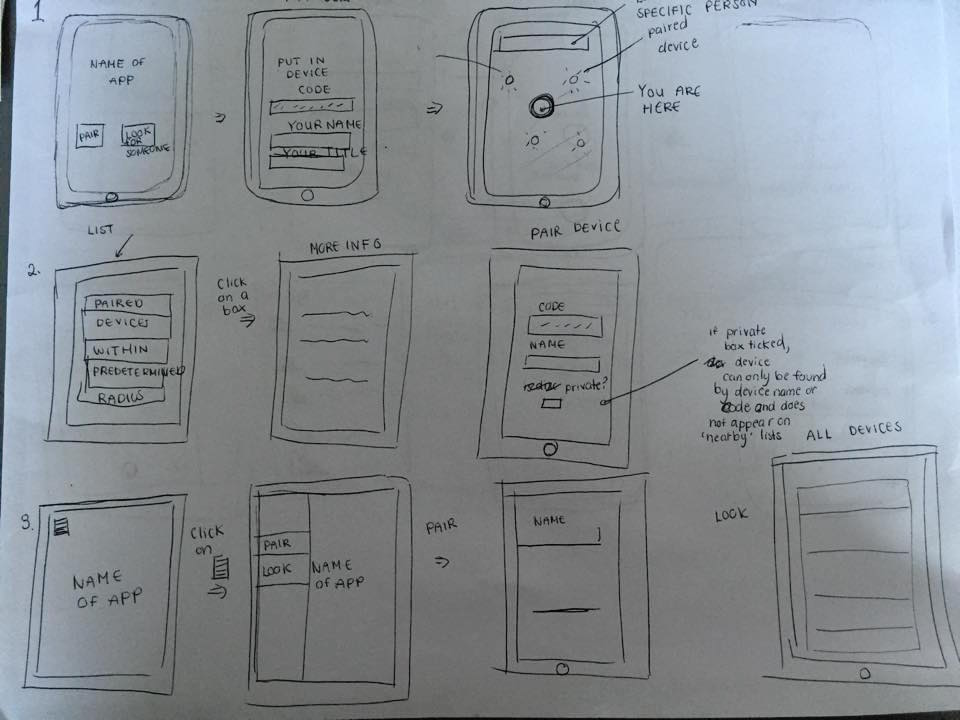 1
NAME OF
APP
PAIR
LOOK
FOR
SOMEONE
PUT IN
DEVICE
CODE
YOUR NAME
YOUR TITLE
SPECIFIC PERSON
paired
device
YOU ARE
HERE
2.
LIST
PAIRED
DEVICES
WITHIN
PREDETERMINED
RADIUS
Click
on a
box
MORE INFO
PAIR DEVICE
CODE
NAME
private?
if private
box ticked,
device
can only be found
by device name or
code and does
not appear on
'nearby' lists
3.
NAME
OF APP
Click
on
PAIR
LOOK
NAME
OF APP
PAIR
NAME
LOOK
ALL DEVICES